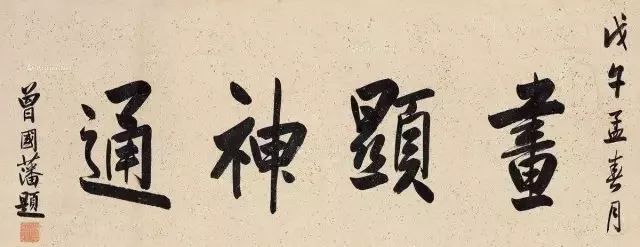 戊午孟春月
畫顯神通
曾國藩題